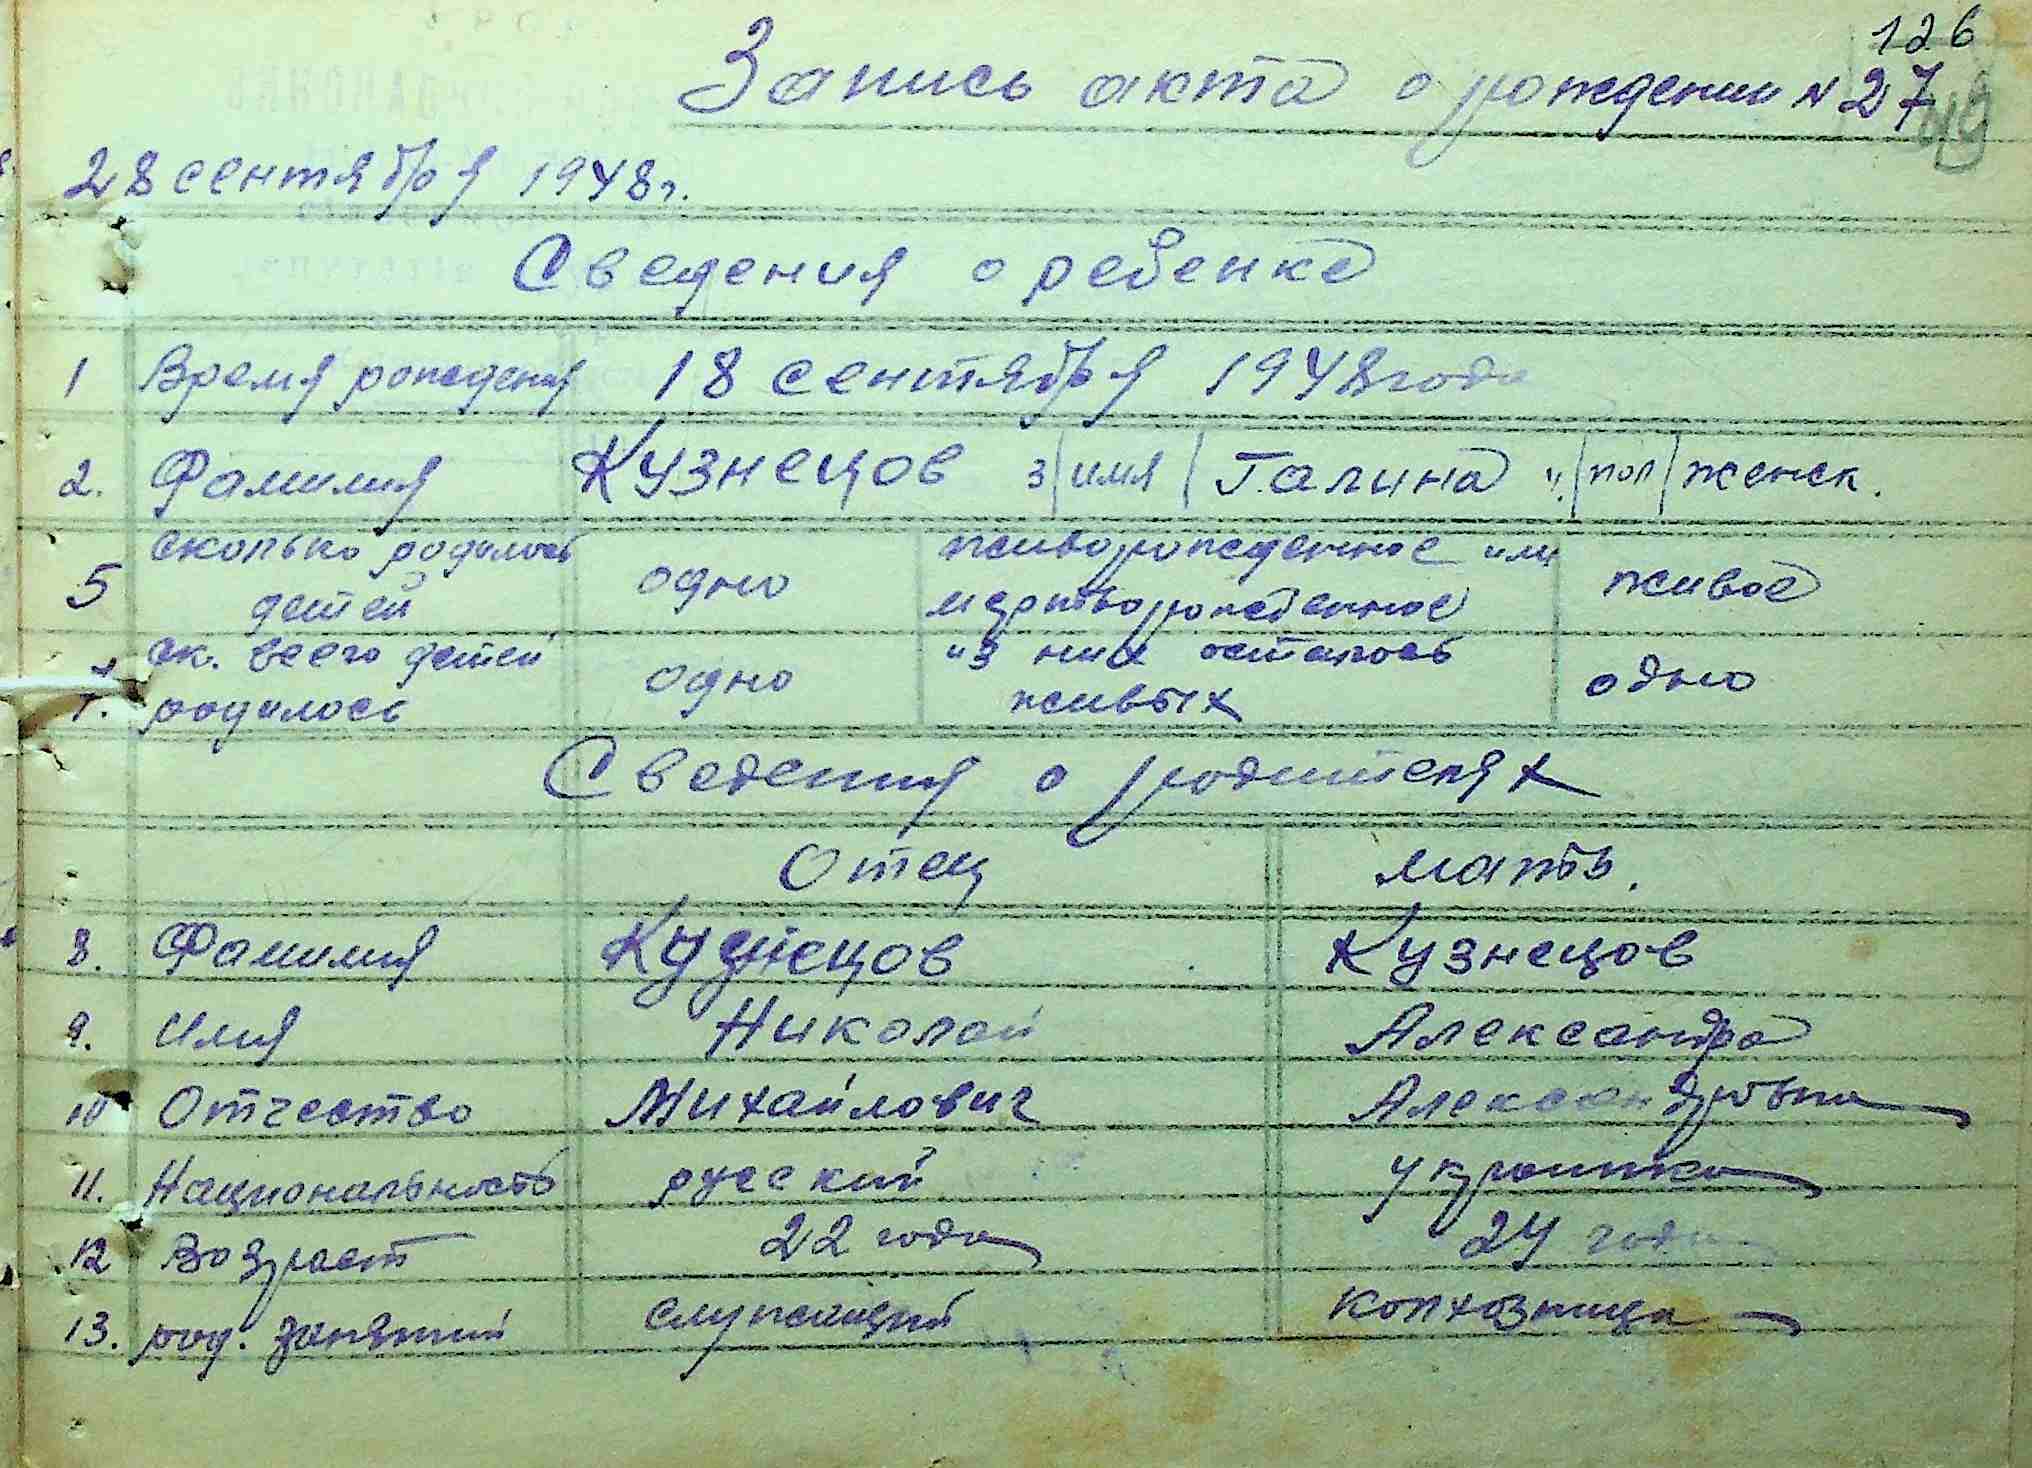 126
Запись акта о рождении N 27
28 сентября 1948 г.
Сведения о ребенке
1 Время рождения 18 сентября 1948 года
2. Фамилия Кузнецов 3 имя Галина 4. пол женск.
5 сколько родилось детей одно живорожденное или мертворожденное живое
7. ск. всего детей родилось одно из них осталось живых одно
Сведения о родителях
Отец мать.
8. Фамилия Кузнецов Кузнецов
9. Имя Николай Александра
10 Отчество Михайлович Александровна
11. Национальность русский украинка
12 Возраст 22 года 24 года
13. род. занятий служащий колхозница